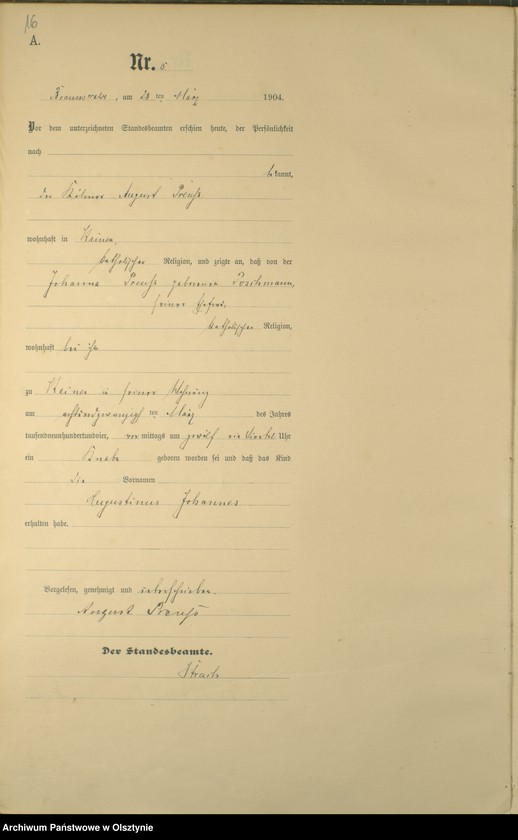 16
A.
Nr. 5
am 28 ten März 1904.
Vor dem unterzeichneten Standesbeamten erschien heute, der Persönlichkeit
nach
bekannt,
der Kölmer August Preuß
wohnhaft in Keinen,
katholischer Religion, und zeigte an, daß von der
Johanna Preuß geborenen Poschmann,
seiner Ehefrau,
katholischer Religion,
wohnhaft bei ihm
zu in seiner Wohnung
am achtundzwanzigsten März des Jahres
tausendneunhundertundvier, vormittags um zwölf ein Viertel Uhr
ein Knabe geboren worden sei und daß das Kind
die Vornamen
Augustinus Johannes
erhalten habe.
Vorgelesen, genehmigt und unterschrieben
August Preuß
Der Standesbeamte.
Archiwum Państwowe w Olsztynie